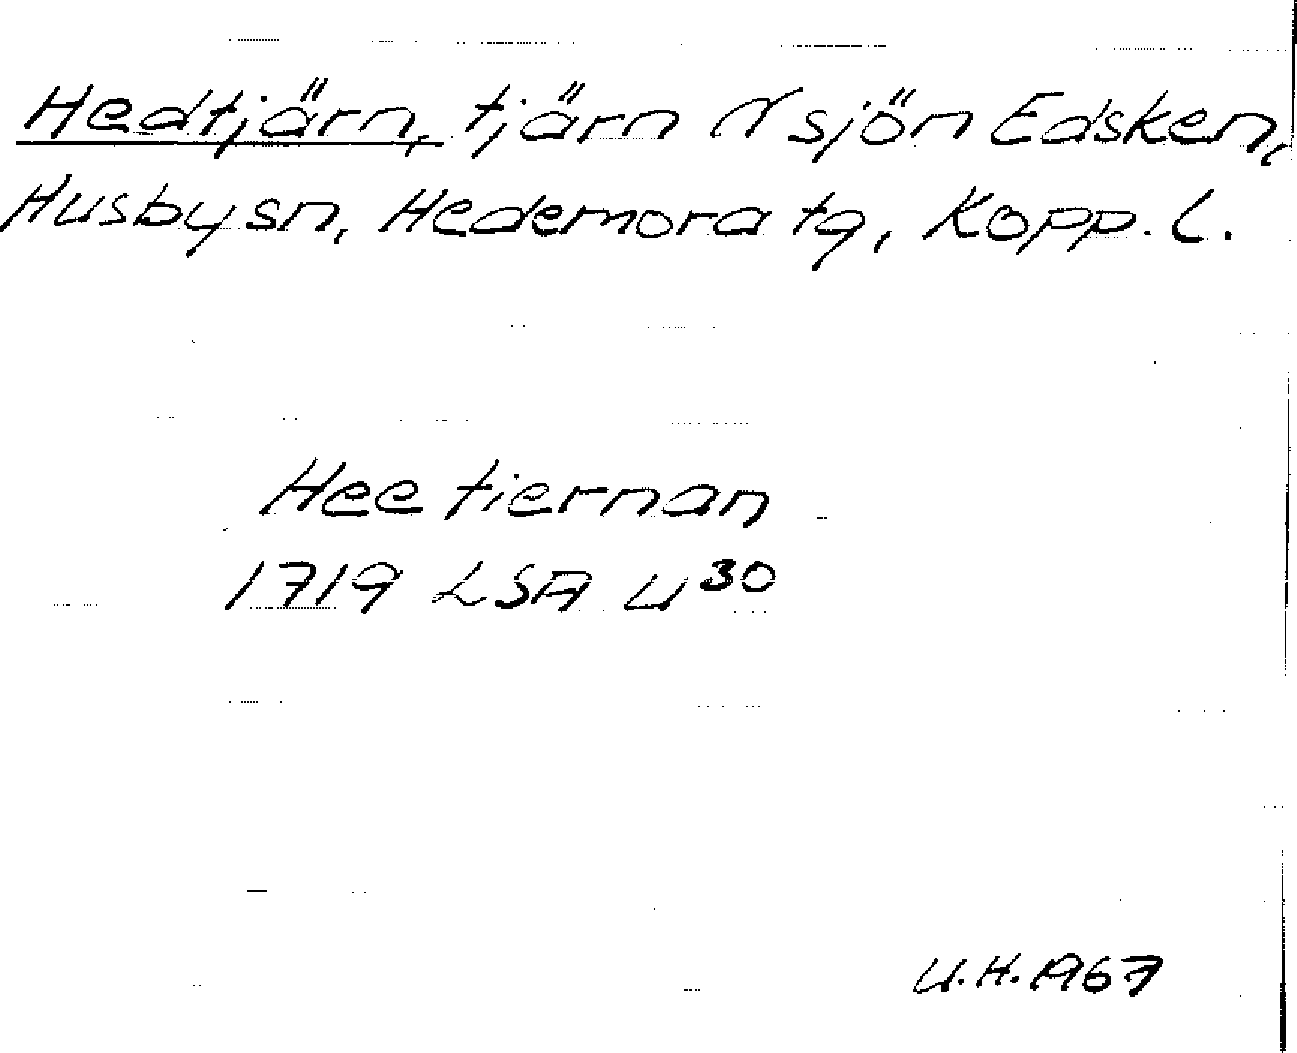 Hedtjärn, tjärn N sjön Edsken,
Husby sn, Hedemora tg, Kopp. L.
Hee tiernan
1719 LSA U 30
U.H. 1967